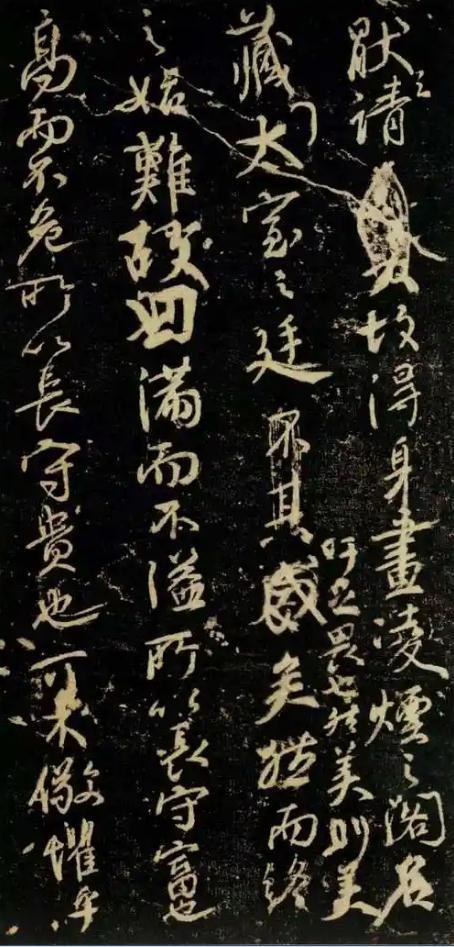 猒之請故得身畫凌煙之閣名
藏太室之廷其盛矣然而終
吁足畏也然美則美
之始難故曰滿而不溢所以長守富也
高而不危所以長守貴也可不儆懼乎